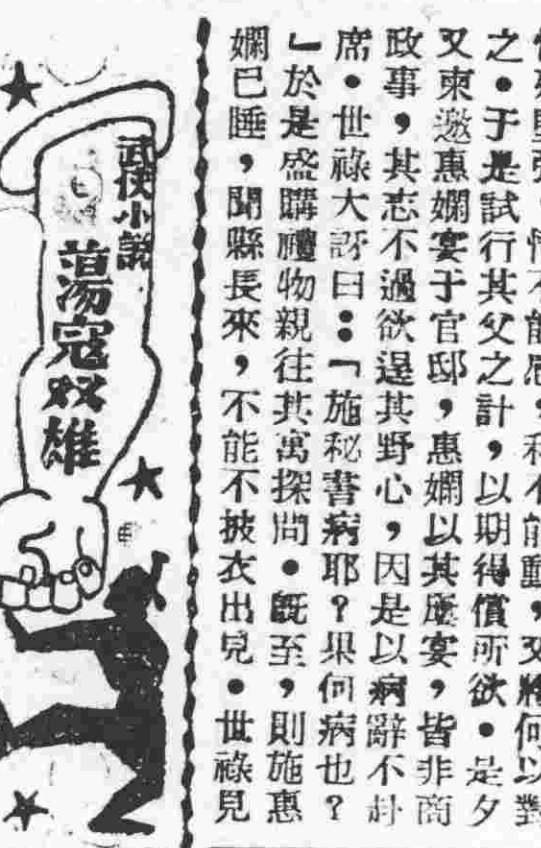 情不能感,利不能動,又將何以對
之•于是試行其父之計,以期得償所欲•是夕
又柬邀惠嫻宴于官邸,惠嫻以其屢宴,皆非商
政事,其志不過欲逞其野心,因是以病辭不赴
席•世祿大訝曰:「施秘書病耶?果何病也?
」於是盛購禮物親往其寓探問•既至,則施惠
嫻已睡,聞縣長來,不能不披衣出見•世祿見
武俠小說
蕩寇双雄